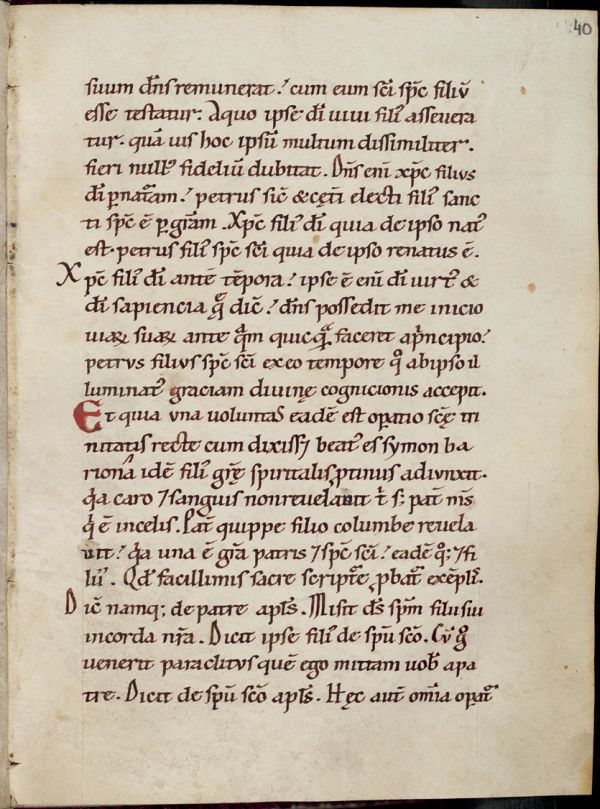 40
suum dn̄s remunerat.᾽ cum eum sc̄i sp̄c filiū
esse testatur. A quo ipse dī uiui fili᾽ assevera
tur. quā uis hoc ipsū multum dissimiliter.
fieri null᾽ fideliū dubitat. Dn̄s enī xp̄c filius
dī ꝑ nat᾽am.᾽ petrus sic̄ & cęt̄i electi filī sanc
ti sp̄c ē ꝑ gr̄am. Xp̄c fili᾽ dī quia de ipso nat᾽
est. petrus fili᾽ sp̄c sc̄i quia de ipso renatus ē.
Xp̄c fili᾽ dī ante tēpora.᾽ ipse ē enī dī uirt᾽ &
dī sapiencia qͦ dic̄.᾽ dn̄s possedit me inicio
uiaꝝ suaꝝ ante qͣm quicqͣ faceret a pͥncipio.᾽
petrus filius sp̄c sc̄i ex eo tempore qͦ ab ipso il
luminat᾽ graciam divinę cognicionis accepit.
Et quia una voluntas eadē est oꝑatio scę̄ tri
nitatis recte cum dixiss& beat᾽ es symon ba
rionā idē fili᾽ gr̄ę spiritalis ꝓtinus adiunxit.
qͥa caro ⁊ sanguis non revelavit t̄ s; pat᾽ m̄s
qͥ ē in celis. Pat᾽ quippe filio columbe revela
vit.᾽ qͥa una ē gr̄a patris ⁊ sp̄c sc̄i.᾽ eadē q; ⁊ fi
lii᾽. Qd̄ facillimis sacre scripturę ꝓbat᾽ exēpl᾽.
Dic̄ namq; de patre apl̄s. Misit ds̄ sp̄m filii sui
in corda nr̄a. Dicit ipse fili᾽ de sp̄u sc̄o. Cū gͦ
venerit paraclitus quē ego mittam uob᾽ a pa
tre. Dicit de sp̄u sc̄o apl̄s. Hęc aut̄ om̄ia oꝑat᾽